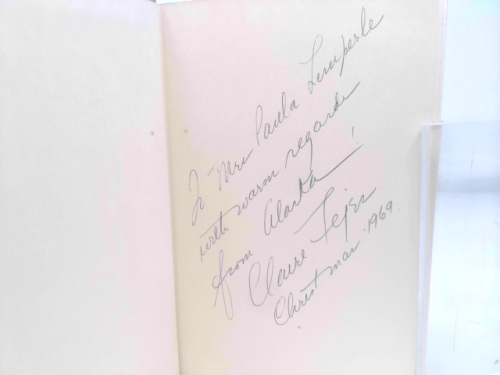 To Mrs Paula Lemperle
with warm regards
from Alaska!
Claire Fejes
Christmas. 1969.